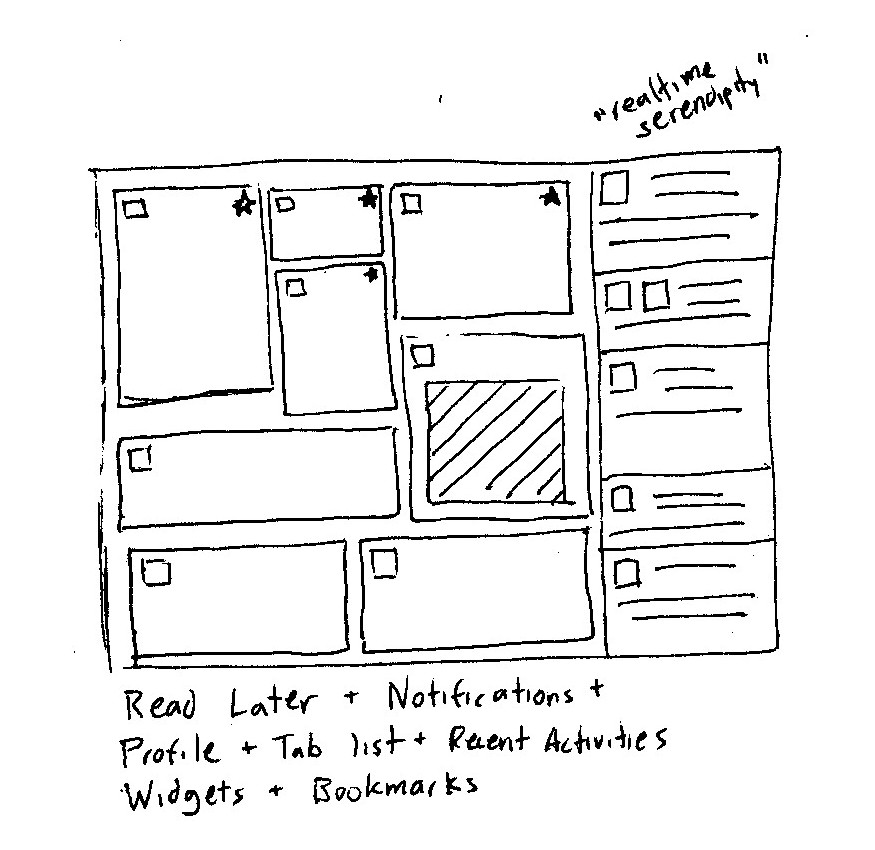 "realtime
serendipity"
Read Later + Notifications +
Profile + Tab list + Recent Activities
Widgets + Bookmarks